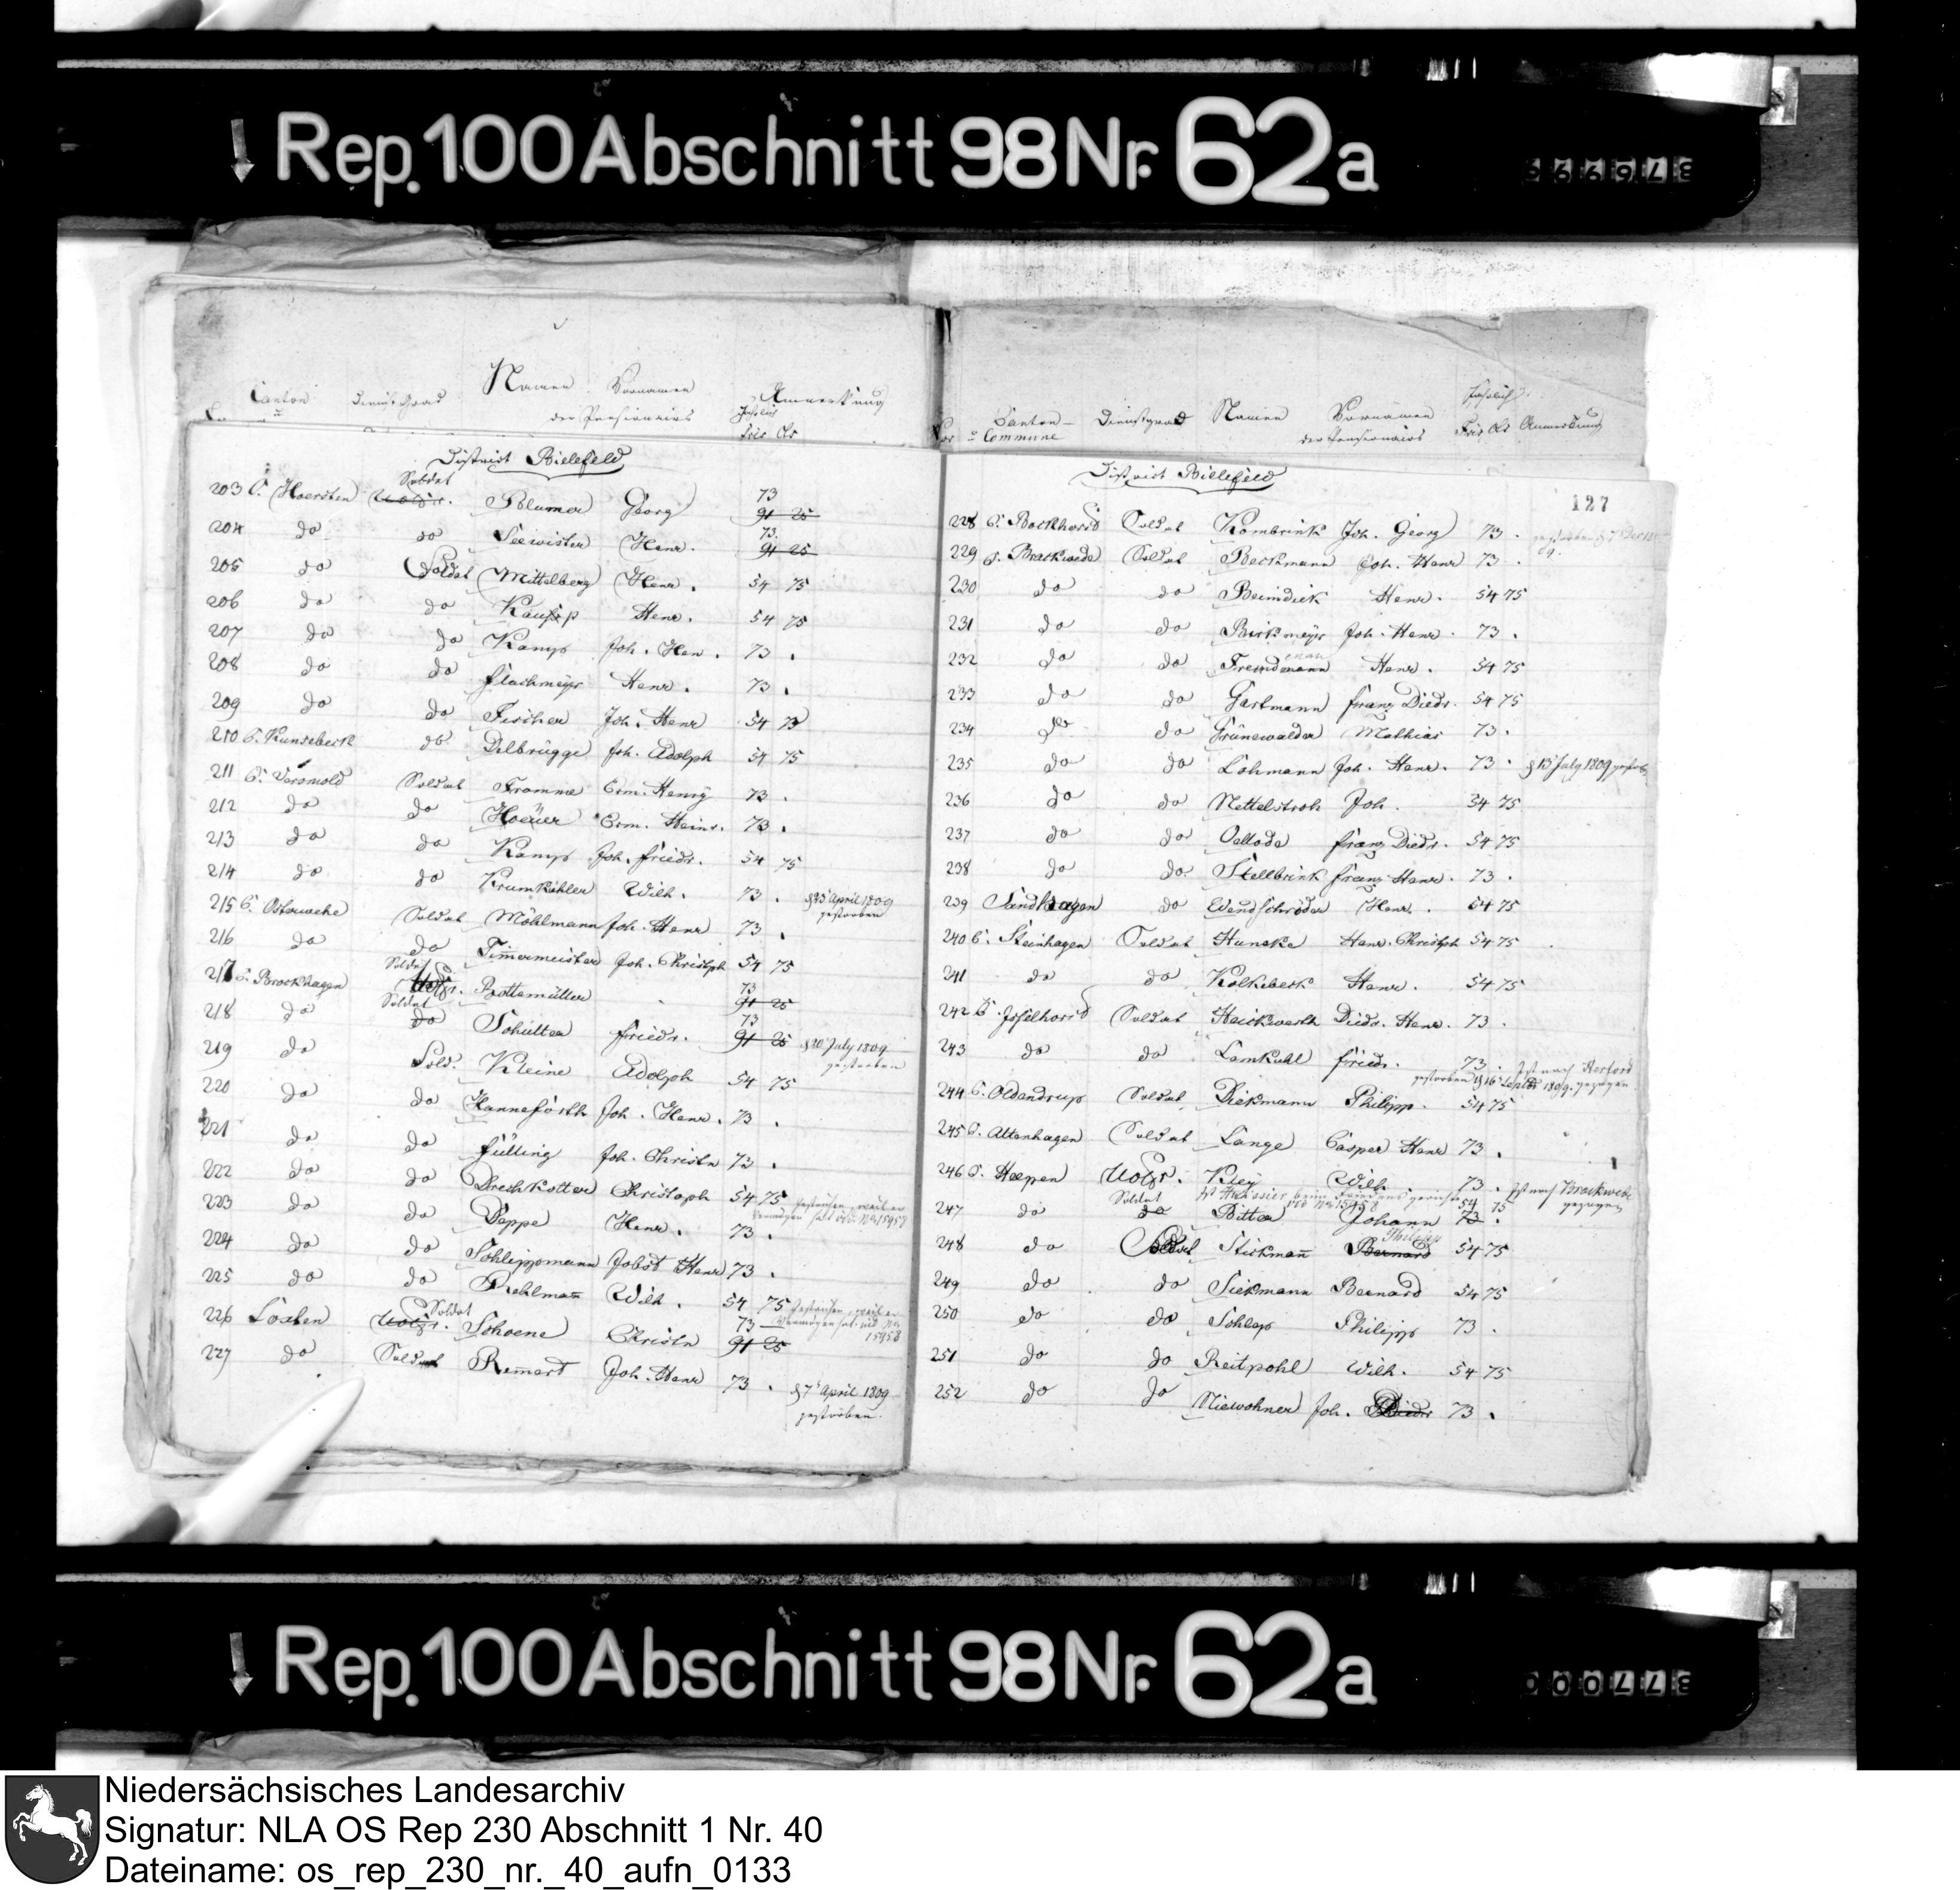 Rep. 100 Abschnitt 98 Nr. 62a
376999
Namen Vornamen Anmerkung
Canton Dienst Grad der Pensionairs Jährlich
u frcs Cts
District Bielefeld
Soldat
203 C. Hoersten Uoffzr. Blumer Georg 73
91 25
204 do do Seewister Henr. 73.
91 25
205 do Soldat Mittelberg Henr. 54 75
206 do do Henr. 54 75
207 do do Kamp Joh. Hen. 73 .
208 do do Flachmeyer Henr. 73 .
209 do do Fischer Joh. Henr 54 73
210 C. Kunsebeck do Delbrügge Joh. Adolph 54 75
211 C. Versmold Soldat Fromme Erm. Henry 73 .
212 do do Hoeüer Erm. Heinr. 73 .
213 do do Kamp Joh. Friedr. 54 75
214 do do Krumköhler Wilh. 73 . d 23 April 1809
gestorben
215 C. Osterwehe Soldat Möhlmann Joh. Henr 73 .
216 do do Timmermeister Joh. Christph 54 75
Soldat
217 C. Brockhagen Uoffzr. Bottemüller 73
91 25
Soldat
218 do do Schütter Friedr. 73
91 25 d 20 July 1809
gestorben
219 do Sold. Kleine Adolph 54 75
220 do do Hanneforth Joh. Henr. 73 .
221 do do Fülling Joh. Christn 73 .
222 do do Drechkötter Christoph 54 75
223 do do Peppe Henr. 73 .
224 do do Schlippmann Jobst Henr 73 .
225 do do Rehlmann Wilh. 54 75
Soldat
226 Loxten Uoffzr. Schoene Christn 73
91 25
15958
227 do Soldat Remert Joh. Henr 73 . d 7 April 1809
gestorben.
Jährlich
Canton Dienstgrad Namen Vornamen
Nor u Commune der Pensionairs Frcs Cts Anmerkung
District Bielefeld
127
228 C. Bockhorst Soldat Kombrink Joh. Georg 73 .
229 C. Brackwede Soldat Beckmann Joh. Henr 73 .
230 do do Beimdiek Henr. 54 75
231 do do Birkmeyer Joh. Henr. 73 .
232 do do Fremdemann Henr. 54 75
233 do do Gartmann Franz Diedr. 54 75
234 do do Grünewalder Mathias 73 .
235 do do Lohmann Joh. Henr. 73 . d 13 July 1809 gestorb.
236 do do Nettelstroh Joh. 54 75
237 do do Franz Diedr. 54 75
238 do do Stellbrink Franz Henr. 73 .
239 Sandhagen do Wendschröder Henr. 54 75
240 C. Steinhagen Soldat Huneke Henr. Christph 54 75
241 do do Kolkebeck Henr. 54 75
242 C. Isselhorst Soldat Heickwerth Diedr. Henr. 73 .
243 do do Lamkuhl Friedr. 73 . Ist nach Herford
gezogen
gestorben d 16 Septbr 1809.
244 C. Oldendrup Soldat Diekmann Philipp. 54 75
245 C. Altenhagen Soldat Lange Casper Henr 73 .
246 C. Heepen Uoffzr. Kley Wilh 73 . Ist nach Brackwede
gezogen
Soldat 54 75
247 do do Bitter Johann 73 .
Philipp
248 do Soldat Stickmann Bernard 54 75
249 do do Siekmann Bernard 54 75
250 do do Schlep Philipp 73 .
251 do do Reitpohl Wilh. 54 75
252 do do Niewohner Joh. Diedr 73 .
Rep. 100 Abschnitt 98 Nr. 62a
377000
Niedersächsisches Landesarchiv
Signatur: NLA OS Rep 230 Abschnitt 1 Nr. 40
Dateiname: os_rep_230_nr._40_aufn_0133